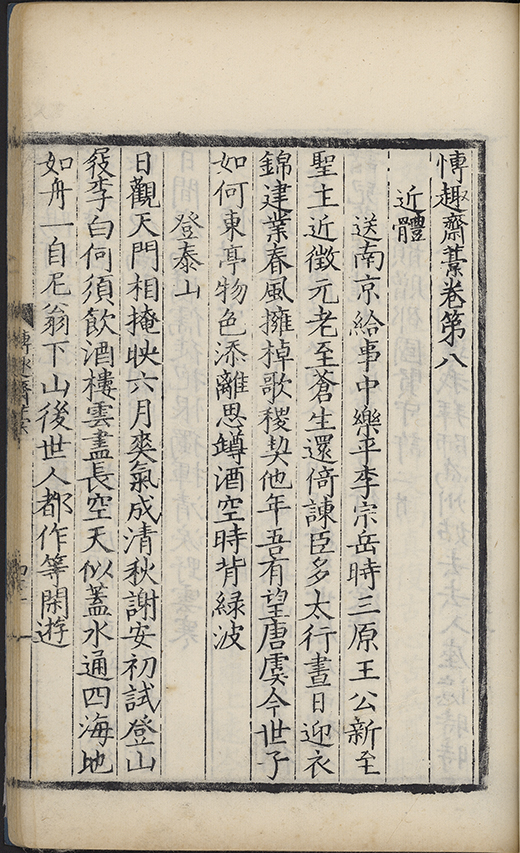 博趣齋藁卷第八
近體
送南京給事中樂平李宗岳時三原王公新至
聖主近徵元老至蒼生還倚諫臣多太行晝日迎衣
錦建業春風擁棹歌稷契他年吾有望唐虞今世子
如何東亭物色添離思罇酒空時背緑波
登泰山
日觀天門相掩映六月爽氣成清秋謝安初試登山
屐李白何須飲酒樓雲盡長空天似蓋水通四海地
如舟一自尼翁下山後世人都作等閑遊